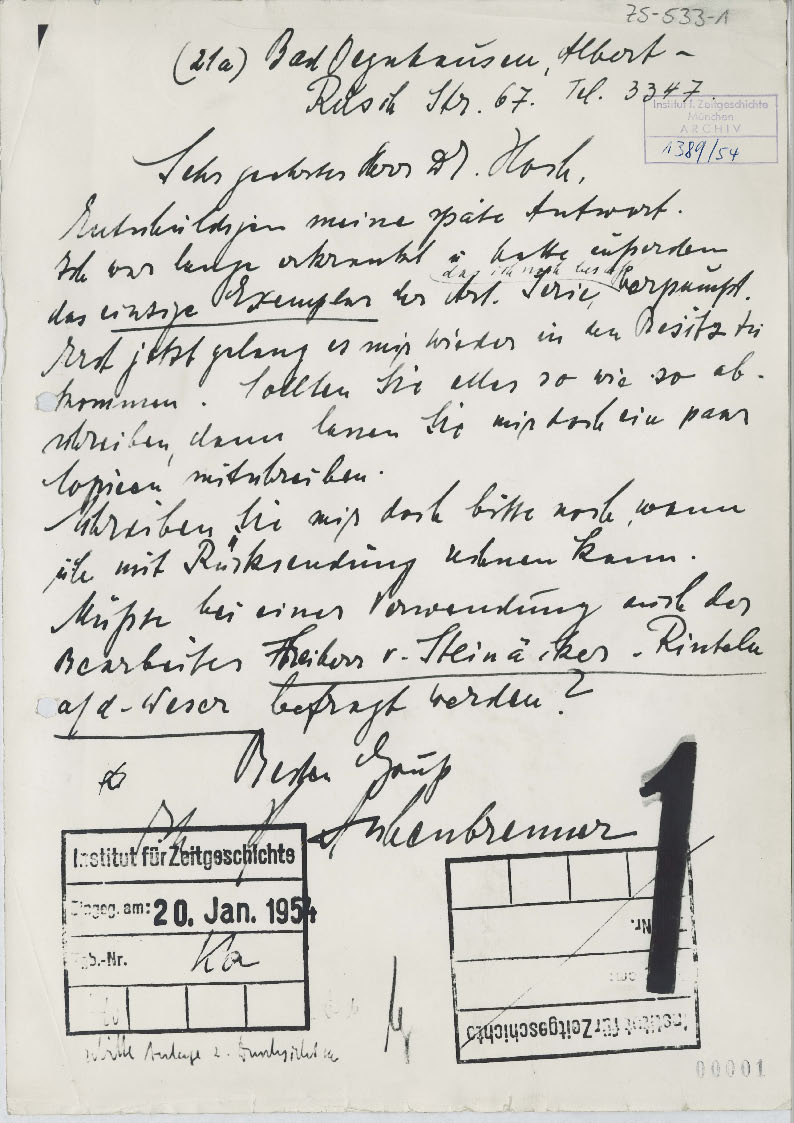 75-533-1
(21a) Bad Oeynhausen, Albert-
Rusch Str. 67. Tel. 3347.
Institut f. Zeitgeschichte
München
ARCHIV
1389/54
Sehr geehrter Herr Dr. Hoch,
Entschuldigen meine späte Antwort.
Ich war lange erkrankt u. hatte außerdem
das ich noch besaß
das einzige Exemplar der Art. Serie, verpumpt.
Erst jetzt gelang es mir wieder in den Besitz zu
kommen. Sollten Sie alles so wie so ab-
schreiben, dann lassen Sie mir doch ein paar
Copieen mitschreiben.
Schreiben Sie mir doch bitte noch, wann
ich mit Rücksendung rechnen kann.
Müßte bei einer Verwendung auch der
Bearbeiter Freiherr v. Steinäcker - Rinteln
a/d - Weser befragt werden?
Besten Gruß
Ihr Aschenbrenner
1
Institut für Zeitgeschichte
Eingeg. am: 20. Jan. 1954
Tgb.-Nr. Ka
Institut für Zeitgeschichte
Nr.
am:
bitte Anlage z. Durchsicht
00001